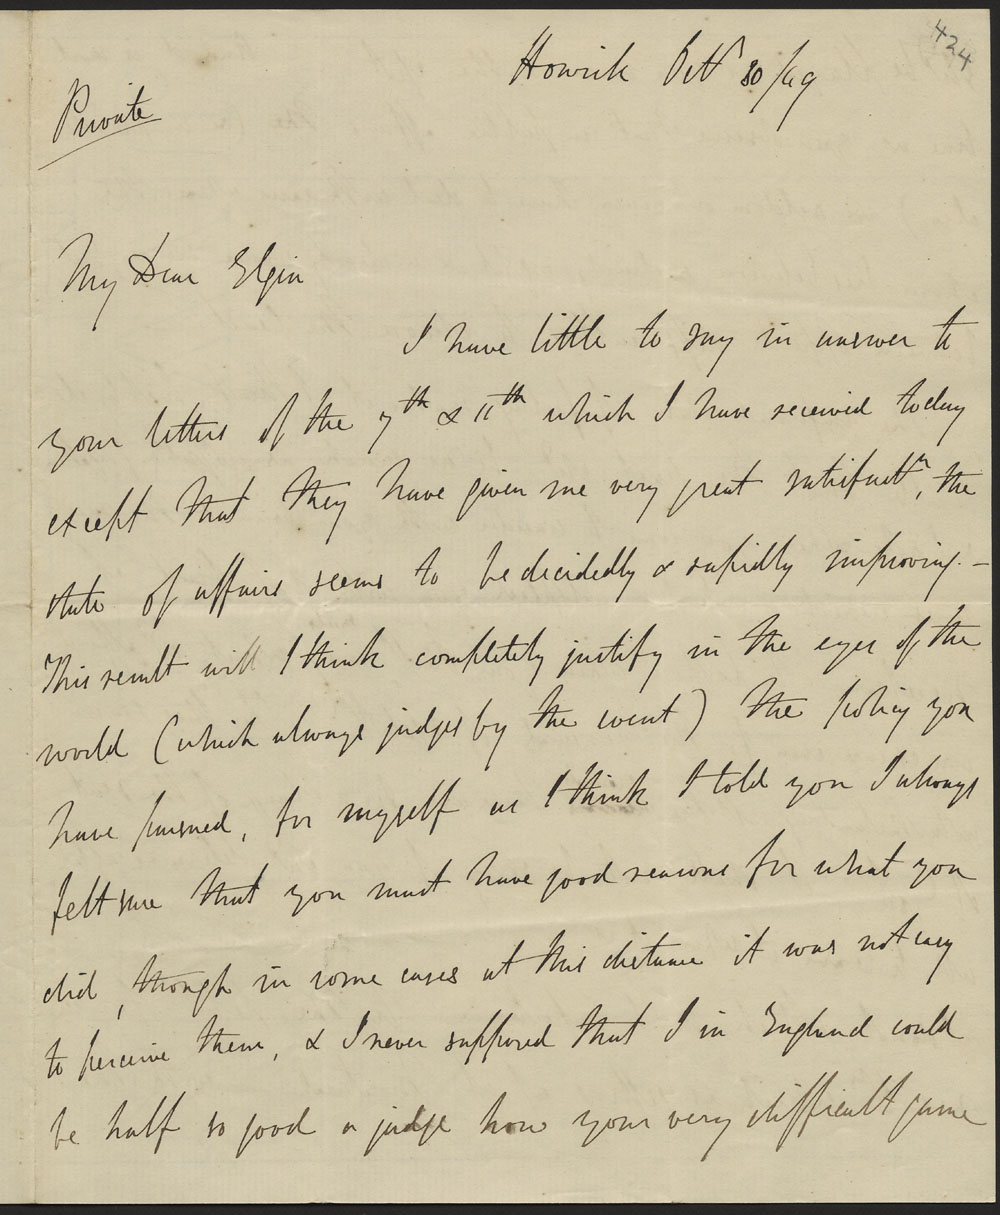 424
Howick Octr 30/49
Private
My Dear Elgin
I have little to say in answer to
your letters of the 7th & 11th which I have received today
except that they have given me very great satisfactn, the
state of affairs seems to be decidedly & rapidly improving. –
This result will I think completely justify in the eyes of the
world (which always judges by the event) the policy you
have pursued, for myself as I think I told you I always
felt sure that you must have good reasons for what you
did, though in some cases at this distance it was not easy
to perceive them, & I never supposed that I in England could
be half so good a judge how your very difficult game